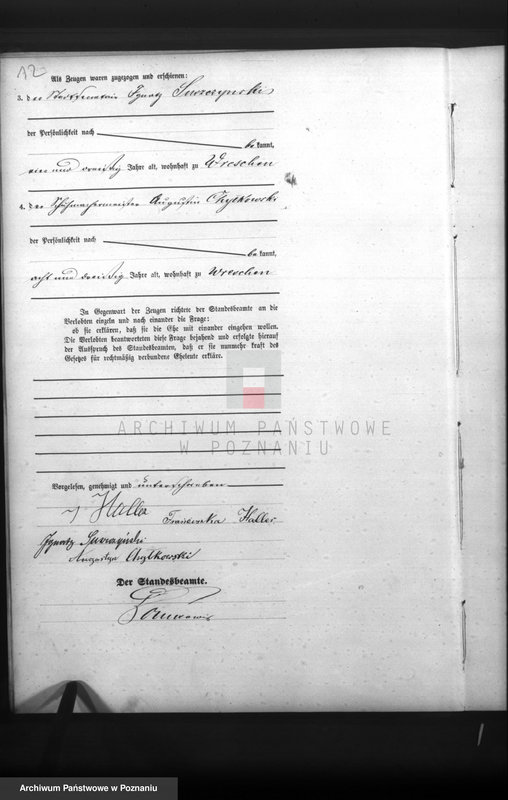 12
Als Zeugen waren zugezogen und erschienen:
3. der Ignatz
der Persönlichkeit nach
be kannt,
ein und dreißig Jahre alt, wohnhaft zu Wreschen
4. der Schuhmachermeister Augustin Chytkowski
der Persönlichkeit nach
be kannt,
acht und dreißig Jahre alt, wohnhaft zu Wreschen
In Gegenwart der Zeugen richtete der Standesbeamte an die
Verlobten einzeln und nach einander die Frage:
ob sie erklären, daß sie die Ehe mit einander eingehen wollen.
Die Verlobten beantworteten diese Frage bejahend und erfolgte hierauf
der Ausspruch des Standesbeamten, daß er sie nunmehr kraft des
Gesetzes für rechtmäßig verbundene Eheleute erkläre.
ARCHIWUM PAŃSTWOWE
W POZNANIU
Vorgelesen, genehmigt und unterschrieben
Franciszka Haller
Ignatz
Augustyn Chytkowski
Der Standesbeamte.
Archiwum Państwowe w Poznaniu